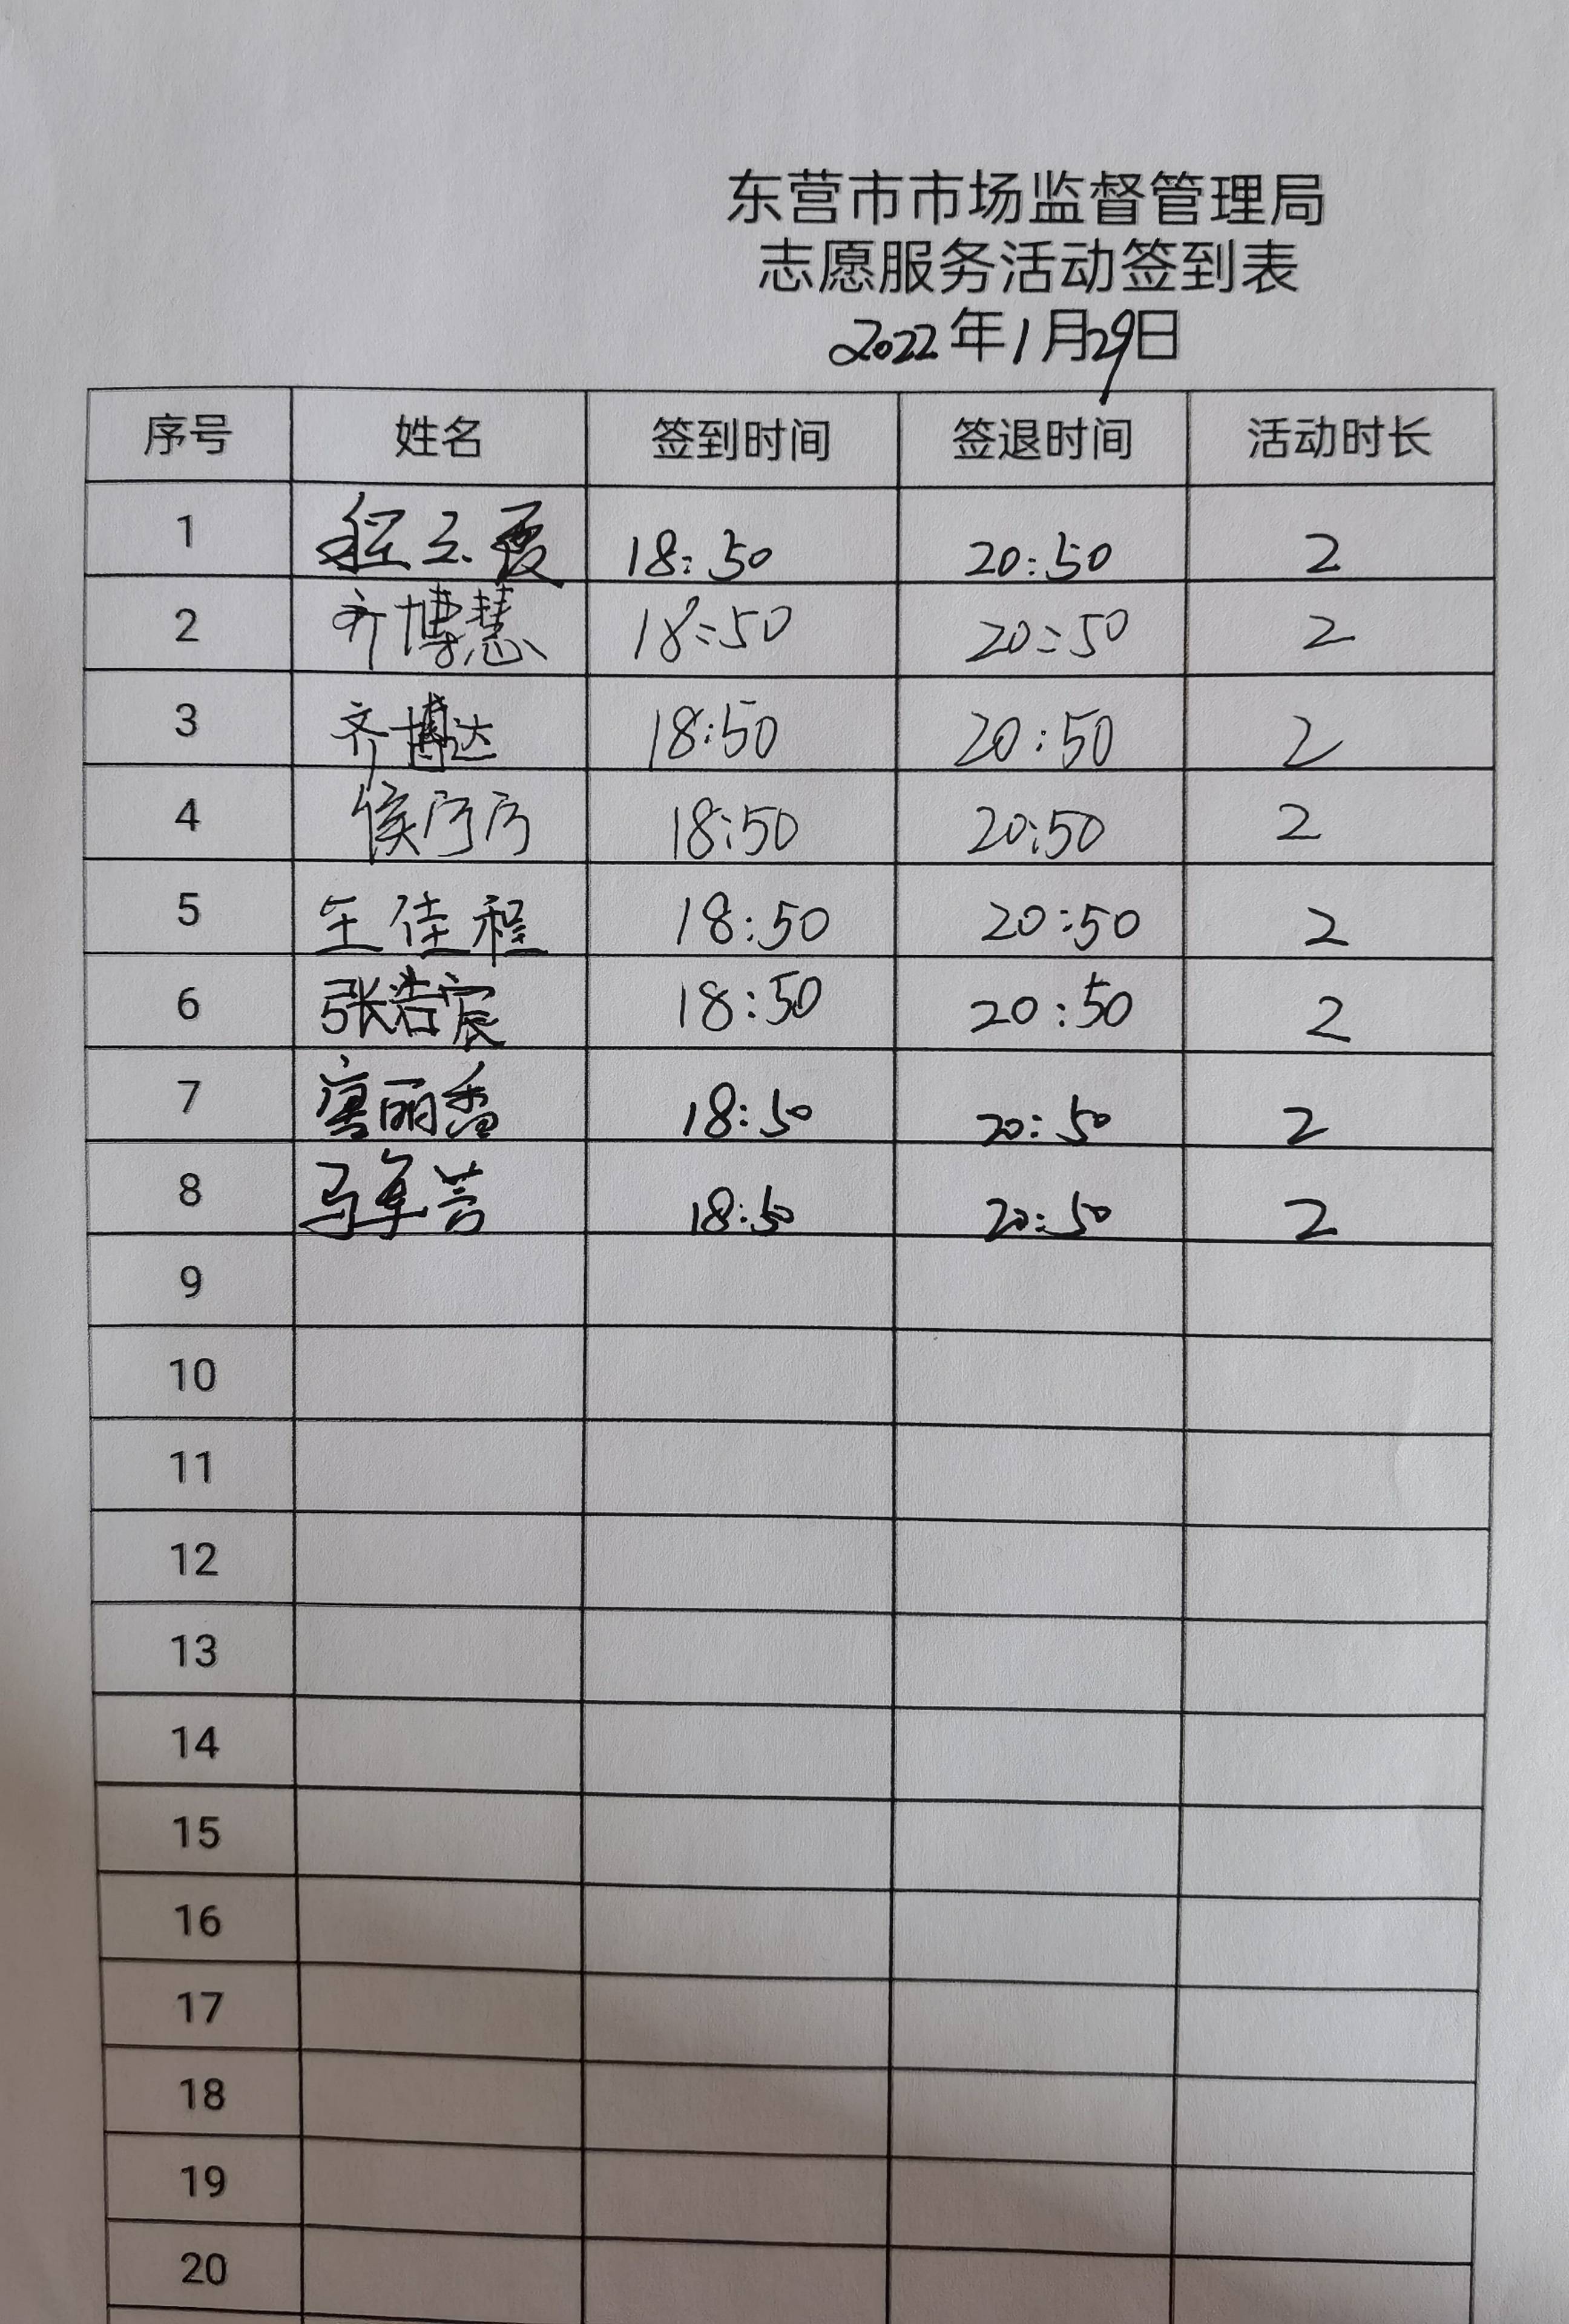 东营市市场监督管理局
志愿服务活动签到表
2022年1月29日
序号 姓名 签到时间 签退时间 活动时长
1 18:50 20:50 2
2 齐博慧 18:50 20:50 2
3 齐博达 18:50 20:50 2
4 18:50 20:50 2
5 王佳程 18:50 20:50 2
6 张浩宸 18:50 20:50 2
7 唐丽香 18:50 20:50 2
8 18:50 20:50 2
9
10
11
12
13
14
15
16
17
18
19
20